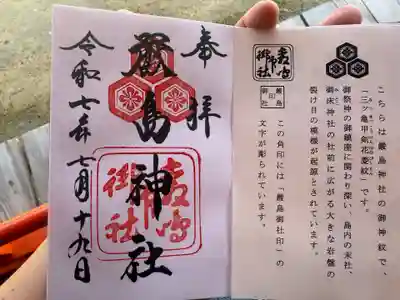 こちらは厳島神社の御神紋で、
「三ツ亀甲剣花菱紋」です。
御祭神の御鎮座に関わり深い、島内の末社、
御床神社の社前に広がる大きな岩盤の
裂け目の模様が起源とされています。
この角印には「厳島御社印」の
文字が彫られています。
奉拝
厳島神社
令和七年七月十九日